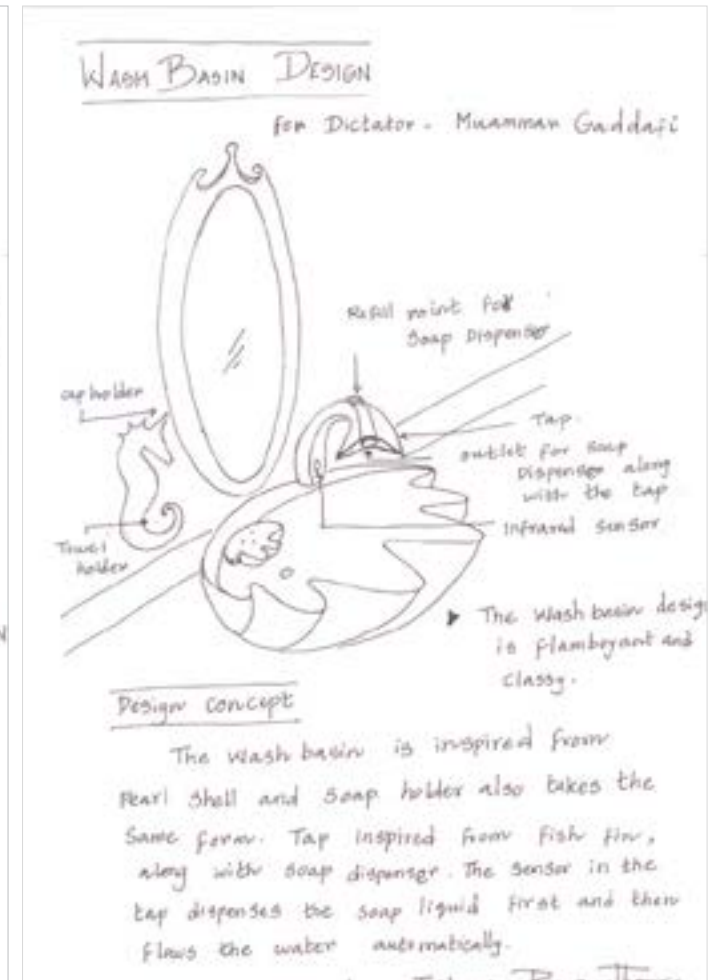 WASH BASIN DESIGN
for Dictator - Muammar Gaddafi
Refill point for
Soap Dispenser
cap holder
Tap.
outlet for soap
Dispenser along
with the tap
Infrared sensor
Towel
holder
The wash basin design
is flamboyant and
classy.
Design concept
The wash basin is inspired from
Pearl shell and soap holder also takes the
same form. Tap inspired from fish fin,
along with soap dispenser. The sensor in the
tap dispenses the soap liquid first and then
flows the water automatically.